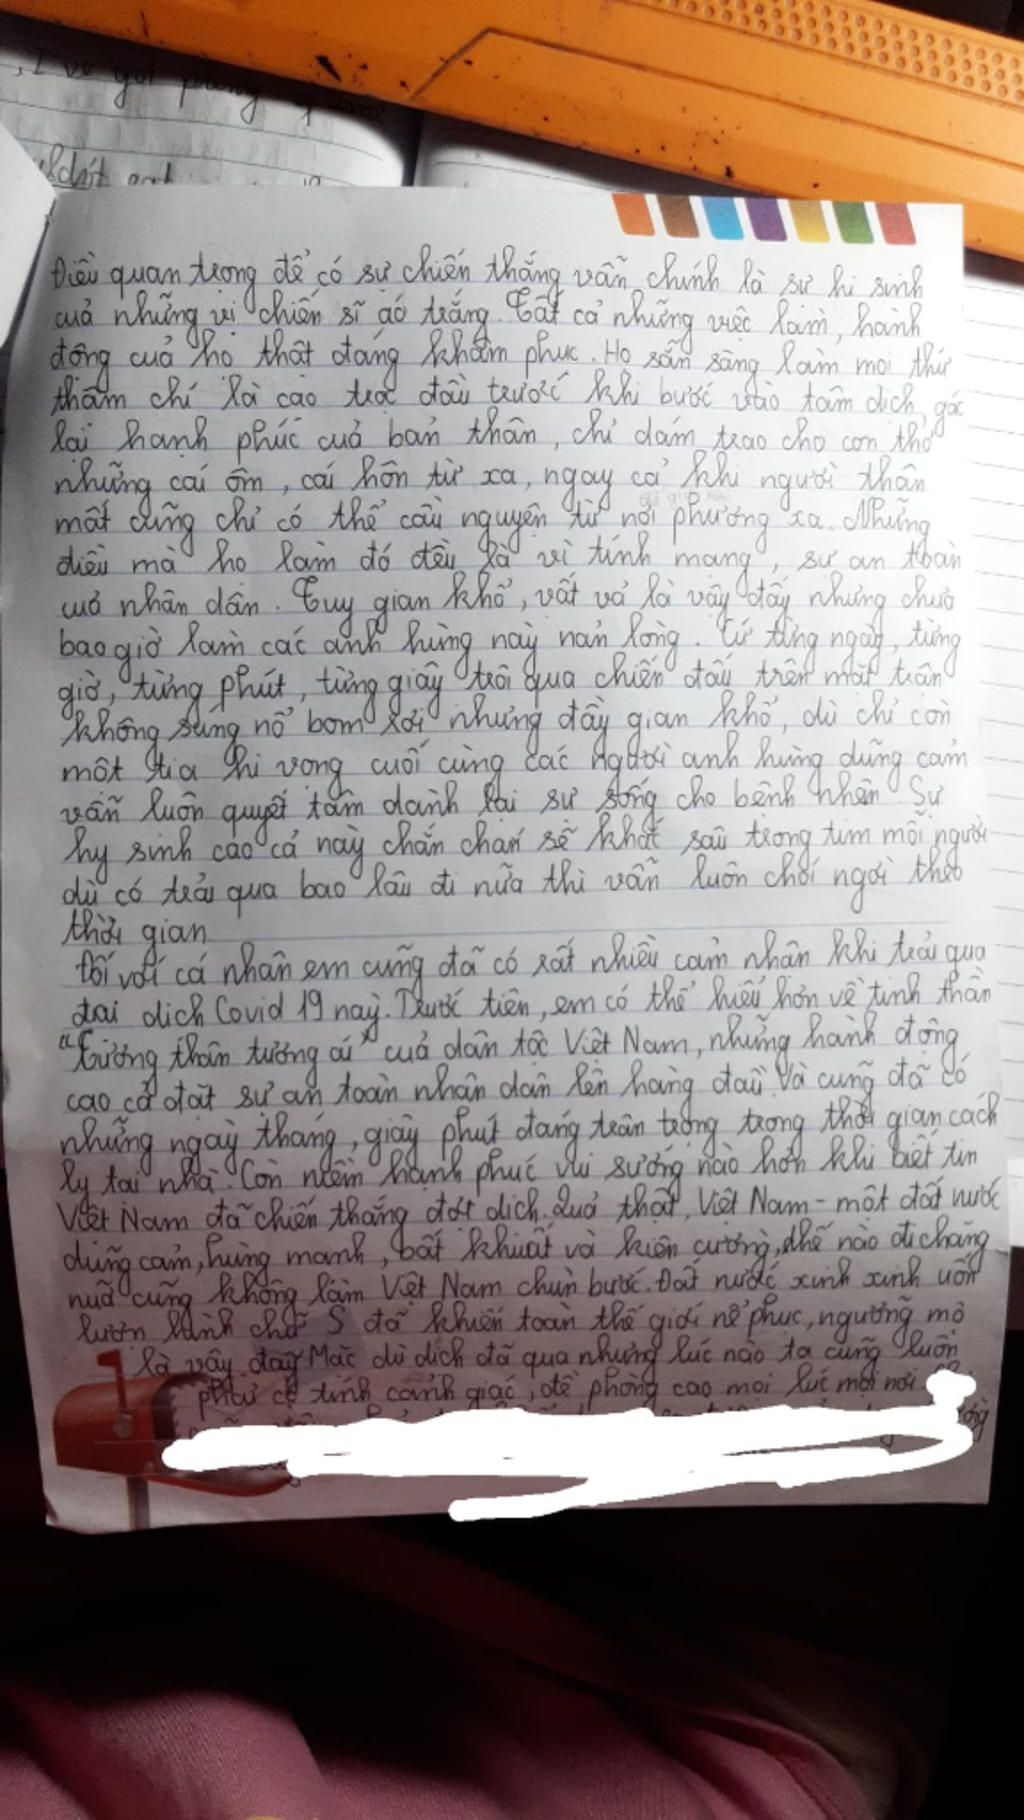 , I've got plenty of time
Điều quan trọng để có sự chiến thắng vẫn chính là sự hi sinh
của những vị chiến sĩ áo trắng. Tất cả những việc làm, hành
động của họ thật đáng khâm phục. Họ sẵn sàng làm mọi thứ
thậm chí là cạo trọc đầu trước khi bước vào tâm dịch, gác
lại hạnh phúc của bản thân, chỉ dám trao cho con thơ
những cái ôm, cái hôn từ xa, ngay cả khi người thân
mất cũng chỉ có thể cầu nguyện từ nơi phương xa. Những
điều mà họ làm đó đều là vì tính mạng, sự an toàn
của nhân dân. Tuy gian khổ, vất vả là vậy đấy nhưng chưa
bao giờ làm các anh hùng này nản lòng. Cứ từng ngày, từng
giờ, từng phút, từng giây trôi qua chiến đấu trên mặt trận
không súng nổ bom rơi nhưng đầy gian khổ, dù chỉ còn
một tia hi vọng cuối cùng các người anh hùng dũng cảm
vẫn luôn quyết tâm dành lại sự sống cho bệnh nhân. Sự
hy sinh cao cả này chắc chắn sẽ khắc sâu trong tim mỗi người
dù có trải qua bao lâu đi nữa thì vẫn luôn chói ngời theo
thời gian
Đối với cá nhân em cũng đã có rất nhiều cảm nhận khi trải qua
đại dịch Covid 19 này. Trước tiên, em có thể hiểu hơn về tinh thần
"Tương thân tương ái" của dân tộc Việt Nam, những hành động
cao cả đặt sự an toàn nhân dân lên hàng đầu. Và cũng đã có
những ngày tháng, giây phút đáng trân trọng trong thời gian cách
ly tại nhà. Còn niềm hạnh phúc vui sướng nào hơn khi biết tin
Việt Nam đã chiến thắng đợt dịch. Quả thật, Việt Nam - một đất nước
dũng cảm, hùng mạnh, bất khuất và kiên cường, thế nào đi chăng
nữa cũng không làm Việt Nam chùn bước. Đất nước xinh xinh uốn
lượn hình chữ S đã khiến toàn thế giới nể phục, ngưỡng mộ
là vậy đấy Mặc dù dịch đã qua nhưng lúc nào ta cũng luôn
phải có tính cảnh giác, đề phòng cao mọi lúc mọi nơi